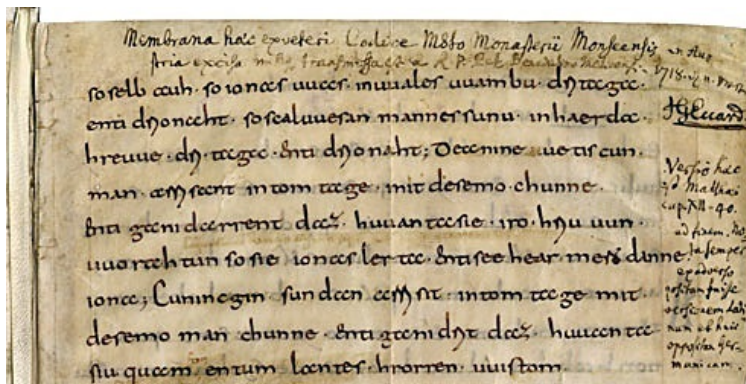 Membrana hæc ex veteri Codice Msto Monasterii Monseensis in Au-
stria excisa mihi transmissa est a R. P. Bernardo
so selb auh · so ionas uuas · in uuales uuambu · dri taga ·
enti drio naht · so scal uuesan mannes sunu · in haerda ·
hreuue · dri · taga · enti drio naht; Dea nineuetiscun ·
man · arrisant in tom tage · mit desemo chunne ·
enti ganidarrent daz · huuanta sie · iro · hriuun ·
uuorahtun so sie ionas lerta · enti see hear mera danne
ionas; Cuningin sundan arrisit · in tom tage mit
desemo man chunne · enti ganidrit daz · huuanta
siu quam · entum lantes · horren uuistom ·
1718
JGEccard
Versio hæc
est Matthæi
cap. XII - 40.
ad finem.
semper
ex adverso
positam fuisse
versionem lati-
nam ex hac
oppositam Ger-
manicam.